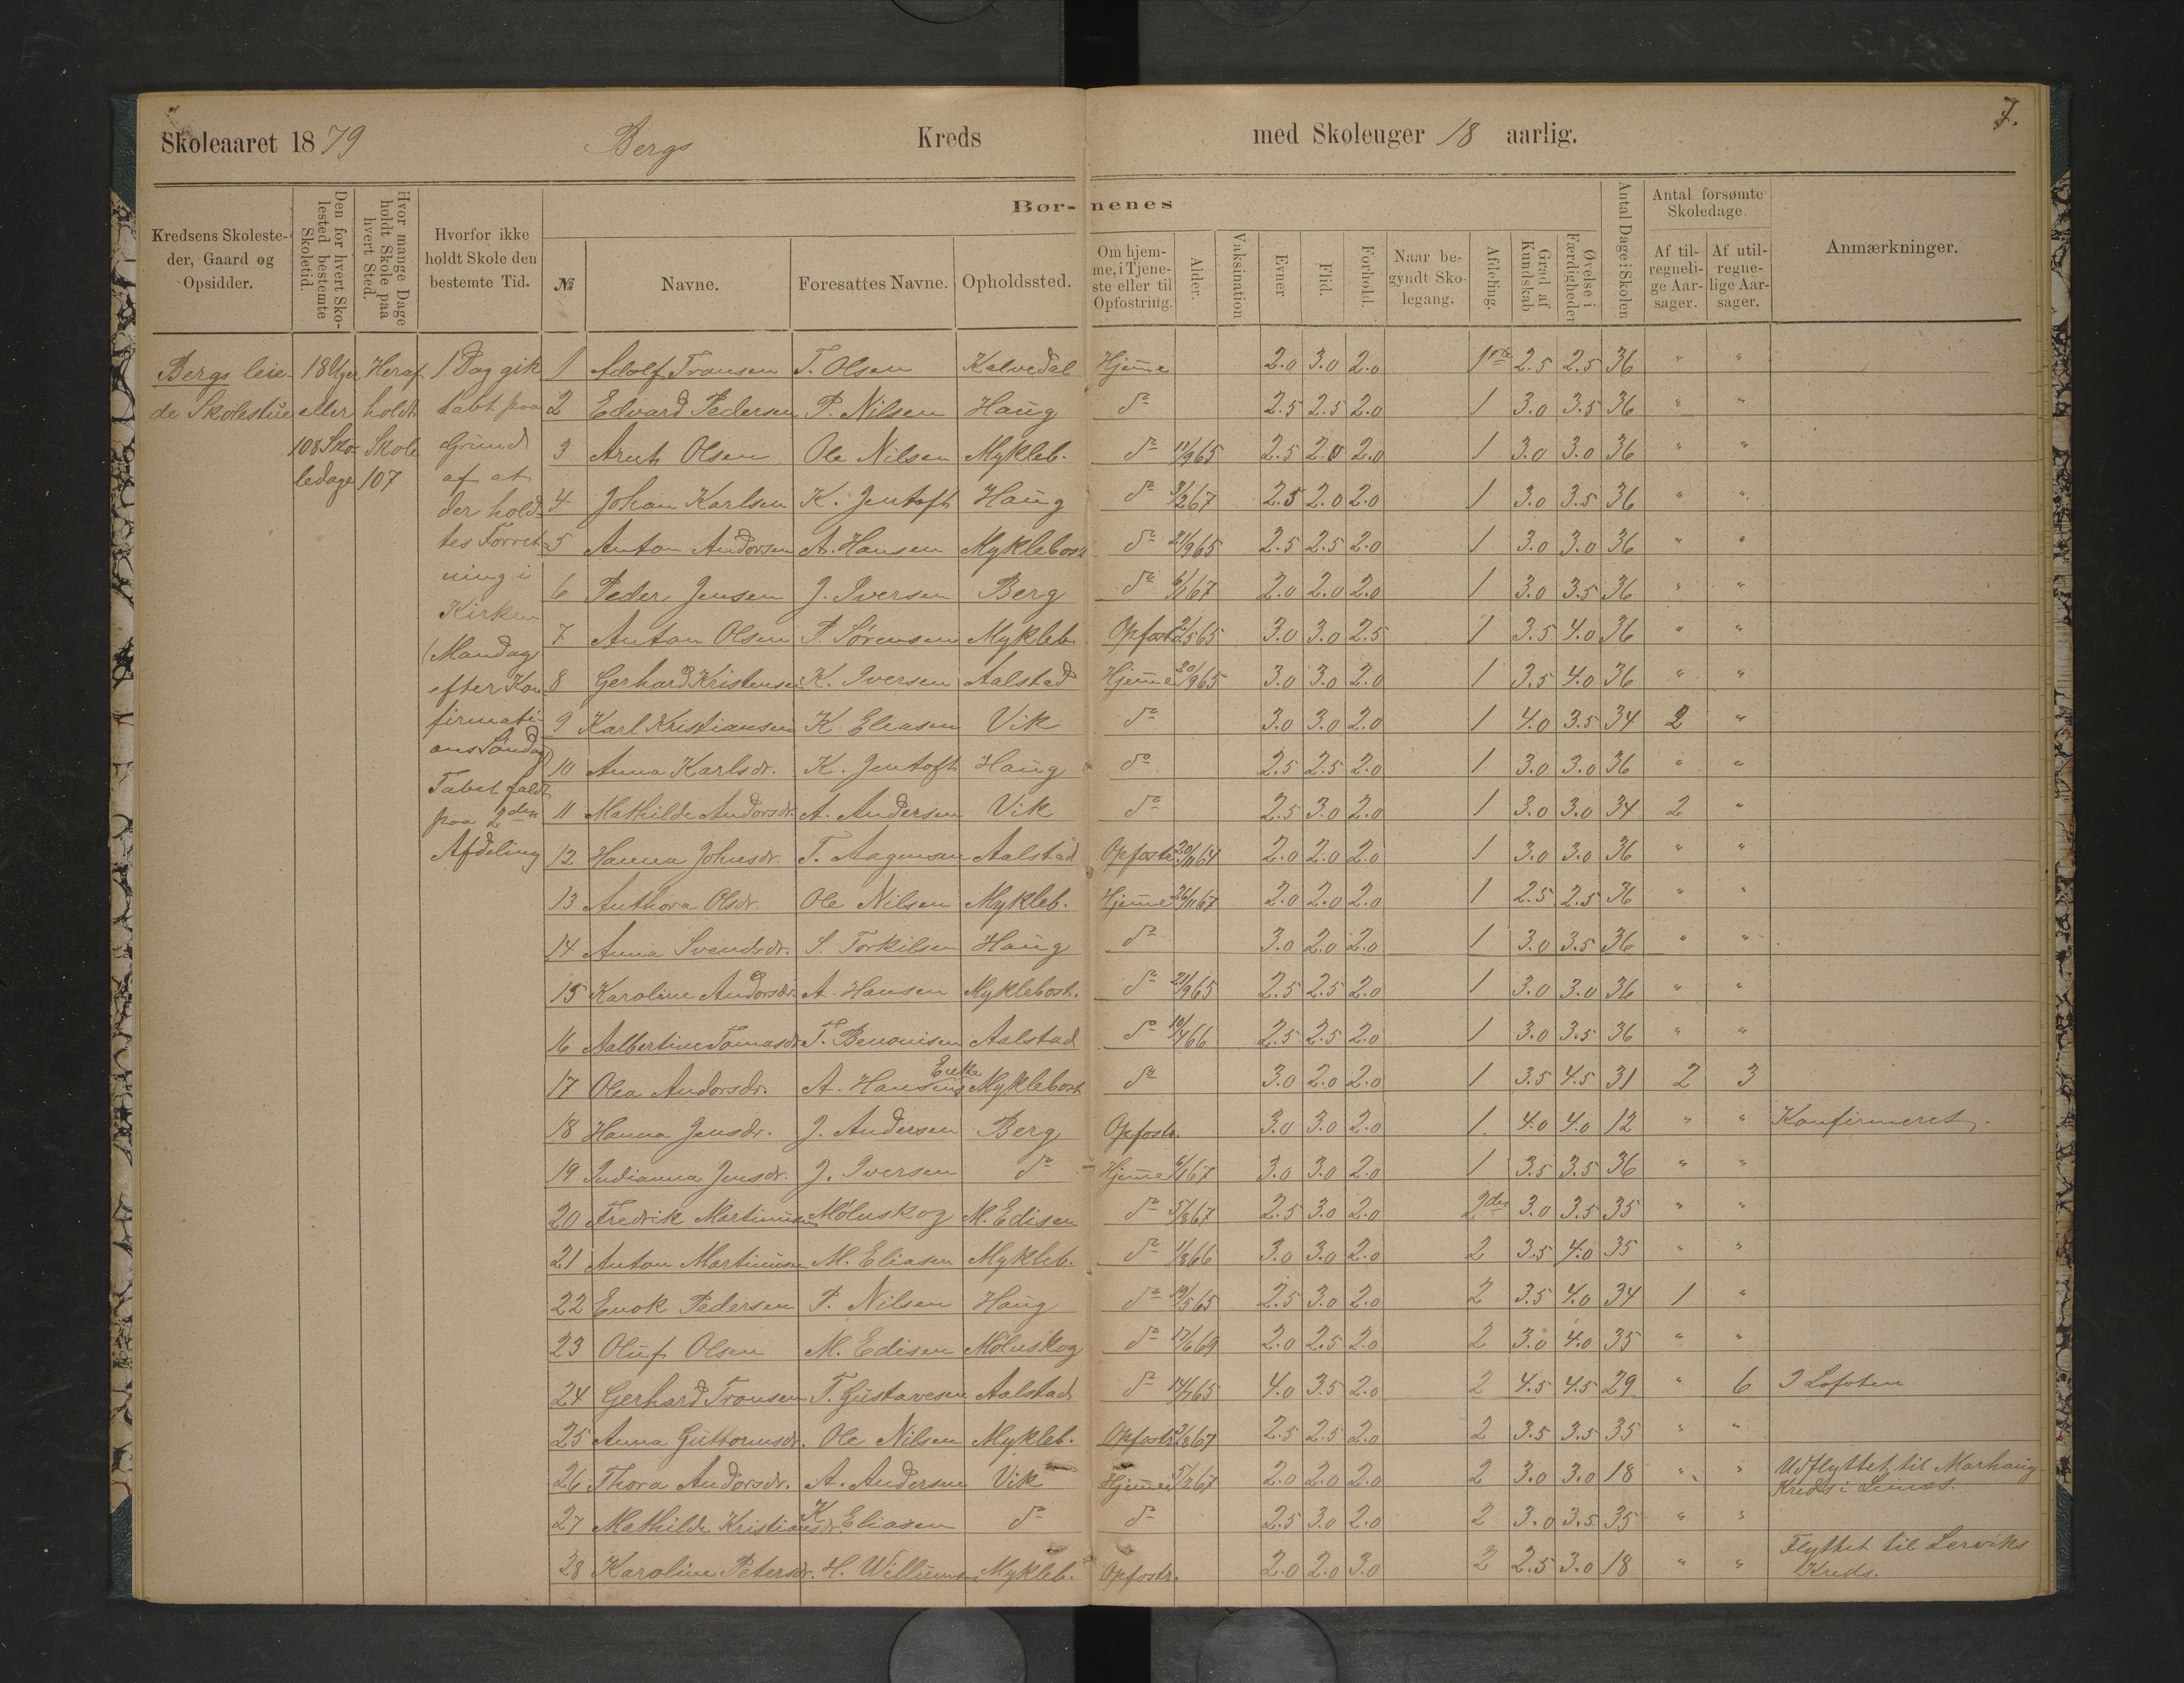 7.
Skoleaaret 1879 Bergs Kreds med Skoleuger 18 aarlig.
Kredsens Skolesteder, Gaard og Opsidder.
Den for hvert Skolested bestemte Skoletid.
Hvor mange Dage holdt Skole paa hvert Sted.
Hvorfor ikke holdt Skole den bestemte Tid.
Børnenes
№ Navne. Foresattes Navne. Opholdssted. Om hjemme, i Tjeneste eller til Opfostring. Alder. Vaksination Evner Flid. Forhold. Naar begyndt Skolegang. Afdeling. Grad af Kundskab Øvelse i Færdigheder
Antal Dage i Skolen
Antal forsømte Skoledage.
Af tilregnelige Aarsager. Af utilregnelige Aarsager.
Anmærkninger.
Bergs leie-
de Skolestue
18 Uger
eller
108 Sko-
ledage
Heraf
holdt
Skole
107
1 Dag gik
tabt paa
Grund
af at
der hold-
tes Forret-
ning i
Kirken
(Mandag
efter Kon
firmati-
ons Søndag)
Tabet faldt
paa 2den
Afdeling
1 Adolf Tronsen T. Olsen Kalvedal Hjemme 2.0 3.0 2.0 1ste 2.5 2.5 36 " "
2 Edvard Pedersen P. Nilsen Haug do 2.5 2.5 2.0 1 3.0 3.5 36 " "
3 Arnt Olsen Ole Nilsen Mykleb. do 12/9 65 2.5 2.0 2.0 1 3.0 3.0 36 " "
4 Johan Karlsen K. Jentoft Haug do 3/2 67 2.5 2.0 2.0 1 3.0 3.5 36 " "
5 Anton Andorsen A. Hansen Myklebost do 21/9 65 2.5 2.5 2.0 1 3.0 3.0 36 " "
6 Peder Jensen J. Iversen Berg do 6/1 67 2.0 2.0 2.0 1 3.0 3.5 36 " "
7 Anton Olsen P. Sørensen Mykleb. Opfostr. 2/5 65 3.0 3.0 2.5 1 3.5 4.0 36 " "
8 Gerhard Kristensen K. Iversen Aalstad Hjemme 30/9 65 3.0 3.0 2.0 1 3.5 4.0 36 " "
9 Karl Kristiansen K. Eliasen Vik do 3.0 3.0 2.0 1 4.0 3.5 34 2 "
10 Anna Karlsdr. K. Jentoft Haug do 2.5 2.5 2.0 1 3.0 3.0 36 " "
11 Mathilde Andorsdr. A. Andersen Vik do 2.5 3.0 2.0 1 3.0 3.0 34 2 "
12 Hanna Johnsdr. T. Aagensen Aalstad Opfostr. 20/11 64 2.0 2.0 2.0 1 3.0 3.0 36 " "
13 Anthora Olsdr. Ole Nilsen Mykleb. Hjemme 26/11 67 2.0 2.0 2.0 1 2.5 2.5 36 " "
14 Anna Svendsdr. S. Torkilsen Haug do 3.0 2.0 2.0 1 3.0 3.5 36 " "
15 Karoline Andorsdr. A. Hansen Myklebost. do 21/9 65 2.5 2.5 2.0 1 3.0 3.0 36 " "
16 Aalbertine Tomasdr. T. Benonisen Aalstad do 10/7 66 2.5 2.5 2.0 1 3.0 3.5 36 " "
17 Olea Andorsdr. A. Hansens Enke Myklebost do 3.0 2.0 2.0 1 3.5 4.5 31 2 3
18 Hanna Jensdr. J. Andersen Berg Opfostr. 3.0 3.0 2.0 1 4.0 4.0 12 " " Konfirmeret.
19 Indianna Jensdr. J. Iversen do Hjemme 6/1 67 3.0 3.0 2.0 1 3.5 3.5 36 " "
20 Fredrik Martinusen Möluskog M. Edisen do 5/8 67 2.5 3.0 2.0 2den 3.0 3.5 35 " "
21 Anton Martinusen M. Eliasen Mykleb. do 1/8 66 3.0 3.0 2.0 2 3.5 4.0 35 " "
22 Enok Pedersen P. Nilsen Haug do 19/5 65 2.5 3.0 2.0 2 3.5 4.0 34 1 "
23 Oluf Olsen M. Edisen Möluskog do 17/6 69 2.0 2.5 2.0 2 3.0 4.0 35 " "
24 Gerhard Tronsen T. Gustavesen Aalstad do 14/7 65 4.0 3.5 2.0 2 4.5 4.5 29 " 6 I Lofoten
25 Anna Guttormsdr. Ole Nilsen Mykleb. Opfostr. 8 67 2.5 2.5 2.0 2 3.5 3.5 35 " "
26 Thora Andorsdr. A. Andersen Vik Hjemme 5/2 67 2.0 2.0 2.0 2 3.0 3.0 18 " " Udflyttet til Marhaug
Kreds i
27 Mathilde Kristiansdr K. Eliasen do do 2.5 3.0 2.0 2 3.0 3.5 35 " "
28 Karoline Petersdr. H. Willumsen Mykleb. Opfostr. 2.0 2.0 3.0 2 2.5 3.0 18 " " Flyttet til Lerviks
Kreds.